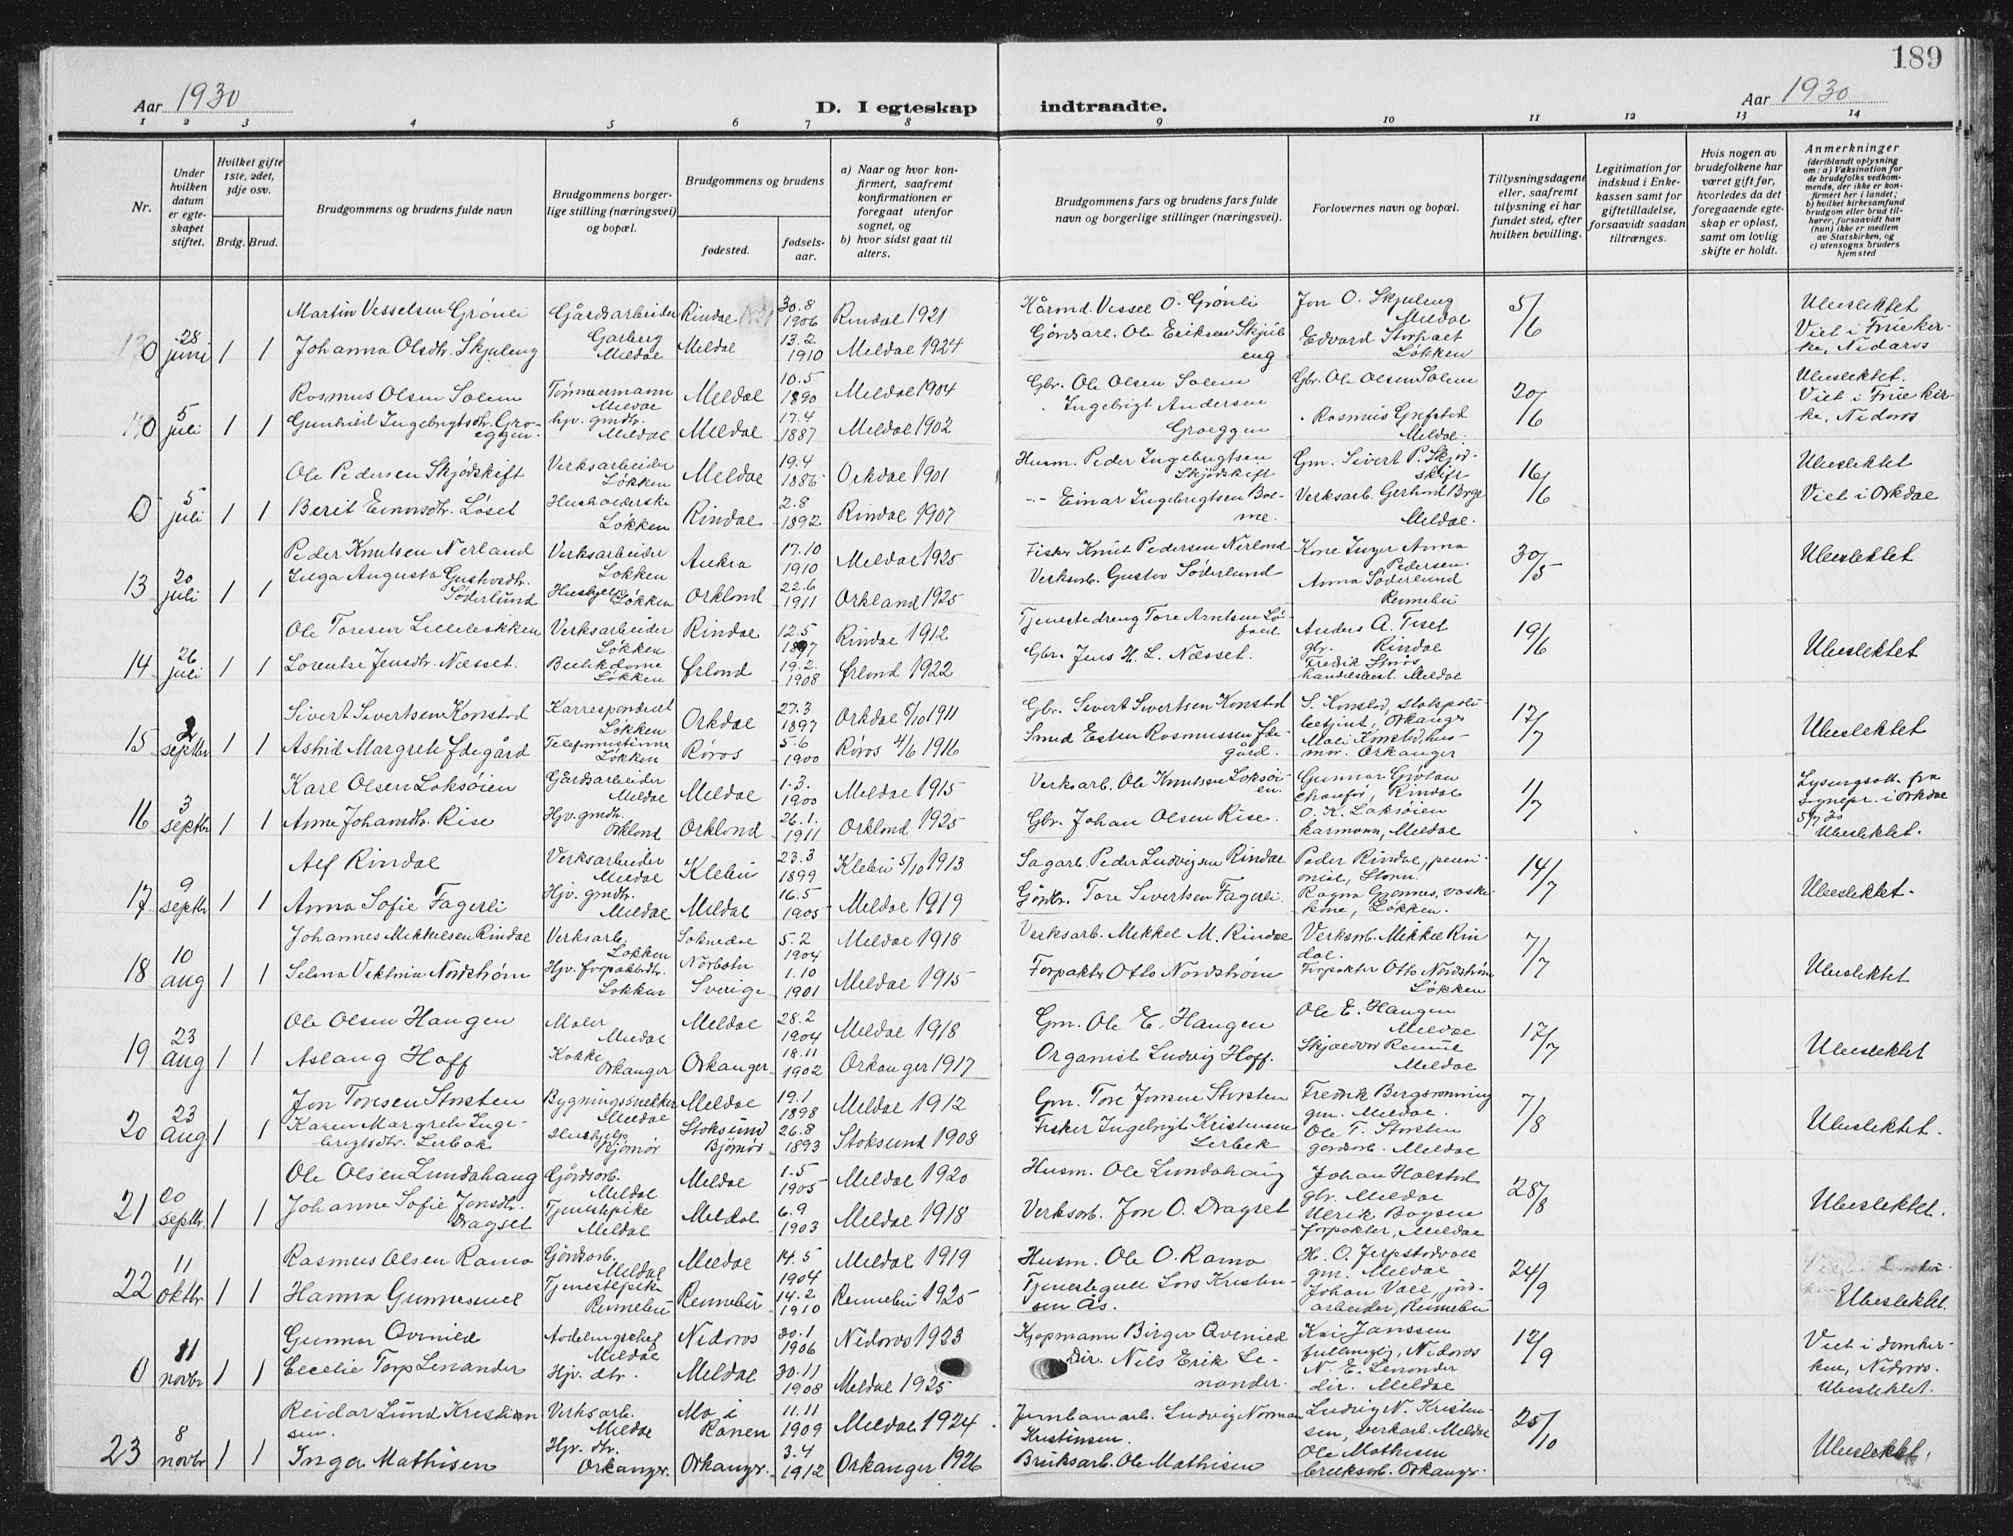 189
Aar 1930
D. I egteskap indtraadte.
Aar 1930
1 2 3 4 5 6 7 8 9 10 11 12 13 14
Nr.
Under hvilken datum er egteskapet stiftet.
Hvilket gifte 1ste, 2det, 3dje osv.
Brdg. Brud.
Brudgommens og brudens fulde navn
Brudgommens borgerlige stilling (næringsvei) og bopæl.
Brudgommens og brudens
fødested.
fødselsaar.
a) Naar og hvor konfirmert, saafremt konfirmationen er foregaat utenfor sognet, og
b) hvor sidst gaat til alters.
Brudgommens fars og brudens fars fulde navn og borgerlige stillinger (næringsvei).
Forlovernes navn og bopæl.
Tillysningsdagene eller, saafremt tillysning ei har fundet sted, efter hvilken bevilling.
Legitimation for indskud i Enkekassen samt for giftetilladelse, forsaavidt saadan tiltrænges.
Hvis nogen av brudefolkene har været gift før, hvorledes da det foregaaende egteskap er opløst, samt om lovlig skifte er holdt.
Anmerkninger (deriblandt oplysning om: a) Vaksination for de brudefolks vedkommende, der ikke er konfirmert her i landet; b) hvilket kirkesamfund brudgom eller brud tilhører, forsaavidt han (hun) ikke er medlem av Statskirken, og c) utensogns bruders hjemsted
0 28 juni 1 1 Martin Vesselsen Grönli Gårdsarbeider Garberg Meldal Rindal 30.8 1906 Rindal 1921 Kårmd Vessel O. Grönli Jon O. Skjuleng Meldal 5/6 Ubeslektet
Johanna Olsdtr. Skjuleng Meldal 13.2 1910 Meldal 1924 Gårdsarb. Ole Eriksen Skjuleng Edvard Løkken Viet i Fruekirke, Nidaros
0 5 juli 1 1 Rasmus Olsen Solem Tømmermann Meldal Meldal 10.5 1890 Meldal 1904 Gbr. Ole Olsen Solem Gbr. Ole Olsen Solem 20/6 Ubeslektet.
Gunhild Ingebrigtsdtr. Groeggen. hjv. gmdtr. Meldal Meldal 17.4 1887 Meldal 1902 Ingebrigt Andersen Groeggen Rasmus Grefstad Meldal. Viet i Fruekirke, Nidaros
0 5 juli 1 1 Ole Pedersen Skjödskift Verksarbeider Løkken Meldal 19.4 1886 Orkdal 1901 Husm. Peder Ingebrigtsen Skjödskift Gm. Sivert P. Skjödskift 16/6 Ubeslektet
Berit Einarsdtr. Løset Husholderske Løkken Rindal 2.8 1892 Rindal 1907 Einar Ingebrigtsen Bolme. Verksarb. Gerhard Meldal. Viet i Orkdal
13 20 juli 1 1 Peder Knutsen Nerland Verksarbeider Løkken Aukra 17.10 1910 Meldal 1925 Fisker Knut Pedersen Nerland Kone Inger Anna Pedersen. 30/5 Ubeslektet
Helga Augusta Gustavsdtr. Söderlund Hushjelp Løkken Orkland 22.6 1911 Orkland 1925 Verksarb. Gustav Söderlund Anna Söderlund Rennebu
14 26 juli 1 1 Ole Toresen Lilleløkken Verksarbeider Løkken Rindal 12.5 1897 Rindal 1912 Tjenestedreng Tore Arntsen Anders A. Tiset gbr. Rindal 19/6 Ubeslektet
Lorentse Jensdtr. Næsset. Butikdame Løkken Ørland 19.2. 1908 Ørland 1922 Gbr. Jens H. L. Næsset. Fredrik handelsbest. Meldal
15 2 septbr 1 1 Sivert Sivertsen Konstad Korrespondent Løkken Orkdal 27.3 1897 Orkdal 5/10 1911 Gbr. Sivert Sivertsen Konstad S. Konstad, statspolibetjent, Orkanger 17/7 Ubeslektet
Astrid Margrete Ydegård Telefonistinne Løkken Røros 5.6 1900 Røros 4/6 1916 Smed Esten Rasmussen Ydegård. Mali Konstad, husmor. Orkanger
16 3 septbr 1 1 Karl Olsen Loksöien Gårdsarbeider Meldal Meldal 1.3. 1900 Meldal 1915 Verksarb. Ole Knutsen Loksöien. Gunnar Grötan chauför, Rindal 1/7 Lysningsatt. fra sognepr. i Orkdal
Anne Johansdtr. Rise Hjv. gmdtr. Orkland Orkland 26.1. 1911 Orkland 1925 Gbr. Johan Olsen Rise. O. K. Loksöien kårmann, Meldal Ubeslektet.
17 9 septbr 1 1 Alf Rindal Verksarbeider Meldal Klebu 23.3 1899 Klebu 5/10 1913 Sagarb. Peder Ludvigsen Rindal Peder Rindal, pensionist, 14/7 Ubeslektet.
Anna Sofie Fagerli Hjv. gmdtr. Meldal Meldal 16.5 1905 Meldal 1919 Gårdbr. Tore Sivertsen Fagerli. Ragna Grønnes, vaskekone, Løkken.
18 10 aug 1 1 Johannes Mikkelsen Rindal Verksarb. Løkken Soknedal 5.2 1904 Meldal 1918 Verksarb. Mikkel M. Rindal Verksarb. Mikkel Rindal. 7/7 Ubeslektet
Selma Viktoria Nordstrøm Hjv. forpakterdtr. Løkken Sverige 1.10 1901 Meldal 1915 Forpakter Otto Nordstrøm Forpakter Otto Nordstrøm Løkken
19 23 aug 1 1 Ole Olsen Haugen Maler Meldal Meldal 28.2 1904 Meldal 1918 Gm. Ole E. Haugen Ole E. Haugen Meldal 17/7 Ubeslektet
Aslaug Hoff Kokke Orkanger Orkanger 18.11 1902 Orkanger 1917 Organist Ludvig Hoff. Skjoldvor Meldal
20 23 aug 1 1 Jon Toresen Storsten Bygningssnekker Meldal Meldal 19.1 1898 Meldal 1912 Gm. Tore Jonsen Storsten Fredrik Bergsrønning gm. Meldal. 7/8 Ubeslektet.
Karen Margrete Ingebrigtsdtr. Lerbak Hushjelp Bjørnør Stoksund Bjørnør 26.8 1893 Stoksund 1908 Fisker Ingebrigt Kristensen Lerbek Ole T. Storsten gårdsarb. Meldal
21 20 septbr. 1 1 Ole Olsen Lundahaug Gårdsarb. Meldal Meldal 1.5 1905 Meldal 1920 Husm. Ole Lundahaug Johan Halstad gbr. Meldal 28/8 Ubeslektet.
Johanne Sofie Jonsdtr. Dragset Tjenestepike Meldal Meldal 6.9 1903 Meldal 1918 Verksarb. Jon O. Dragset Ulrik Bogsen forpakter, Meldal
22 11 oktbr 1 1 Rasmus Olsen Ramo Gårdsarb. Meldal Meldal 14.5 1904 Meldal 1919 Husm. Ole O. Ramo H. O. Jerpstadvall gm. Meldal 24/9
Hanna Gunnesmel Tjenestepike Rennebu Rennebu 14.2 1910 Rennebu 1925 Tjenestegutt Lars Kristensen Ås. Johan Vall, jordarbeider, Rennebu Ubeslektet.
0 11 novbr 1 1 Gunnar Qvenild Avdelingschef Meldal Nidaros 30.1 1906 Nidaros 1923 Kjøpmann Birger Qvenild Kai Janssen fullmegtig, Nidaros 12/9 Viet i domkirken, Nidaros.
Cecelie Torp Lenander Hjv. dtr. Meldal 30.11 1908 Meldal 1925 Dir. Nils Erik Lenander. N. E. Lenander dir. Meldal Ubeslektet.
23 8 novbr 1 1 Reidar Lund Kristiansen. Verksarb. Meldal Mo i Ranen 11.11 1909 Meldal 1924 Jernbanearb. Ludvig Norman Kristensen. Ludvig N. Kristensen, verksarb. Meldal 25/10 Ubeslektet.
Inga Mathisen Hjv. dtr. Orkanger. Orkanger. 3.4 1912 Orkanger 1926 Bruksarb. Ole Mathisen Ole Mathisen bruksarb. Orkanger.